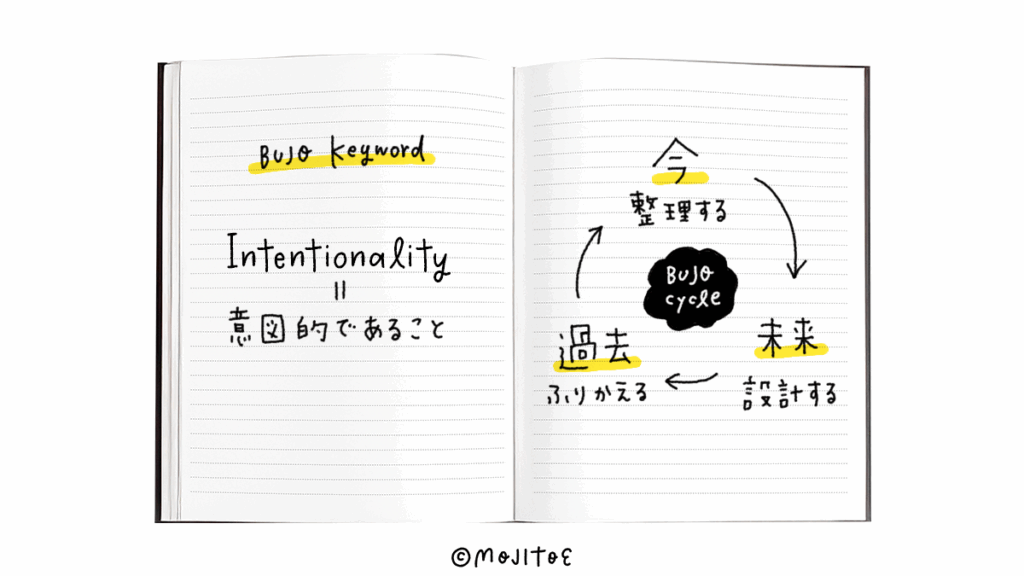 BUJO Keyword
Intentionality
=
意図的であること
今
整理する
BUJO
cycle
未来
設計する
過去
ふりかえる
©MOJITOE